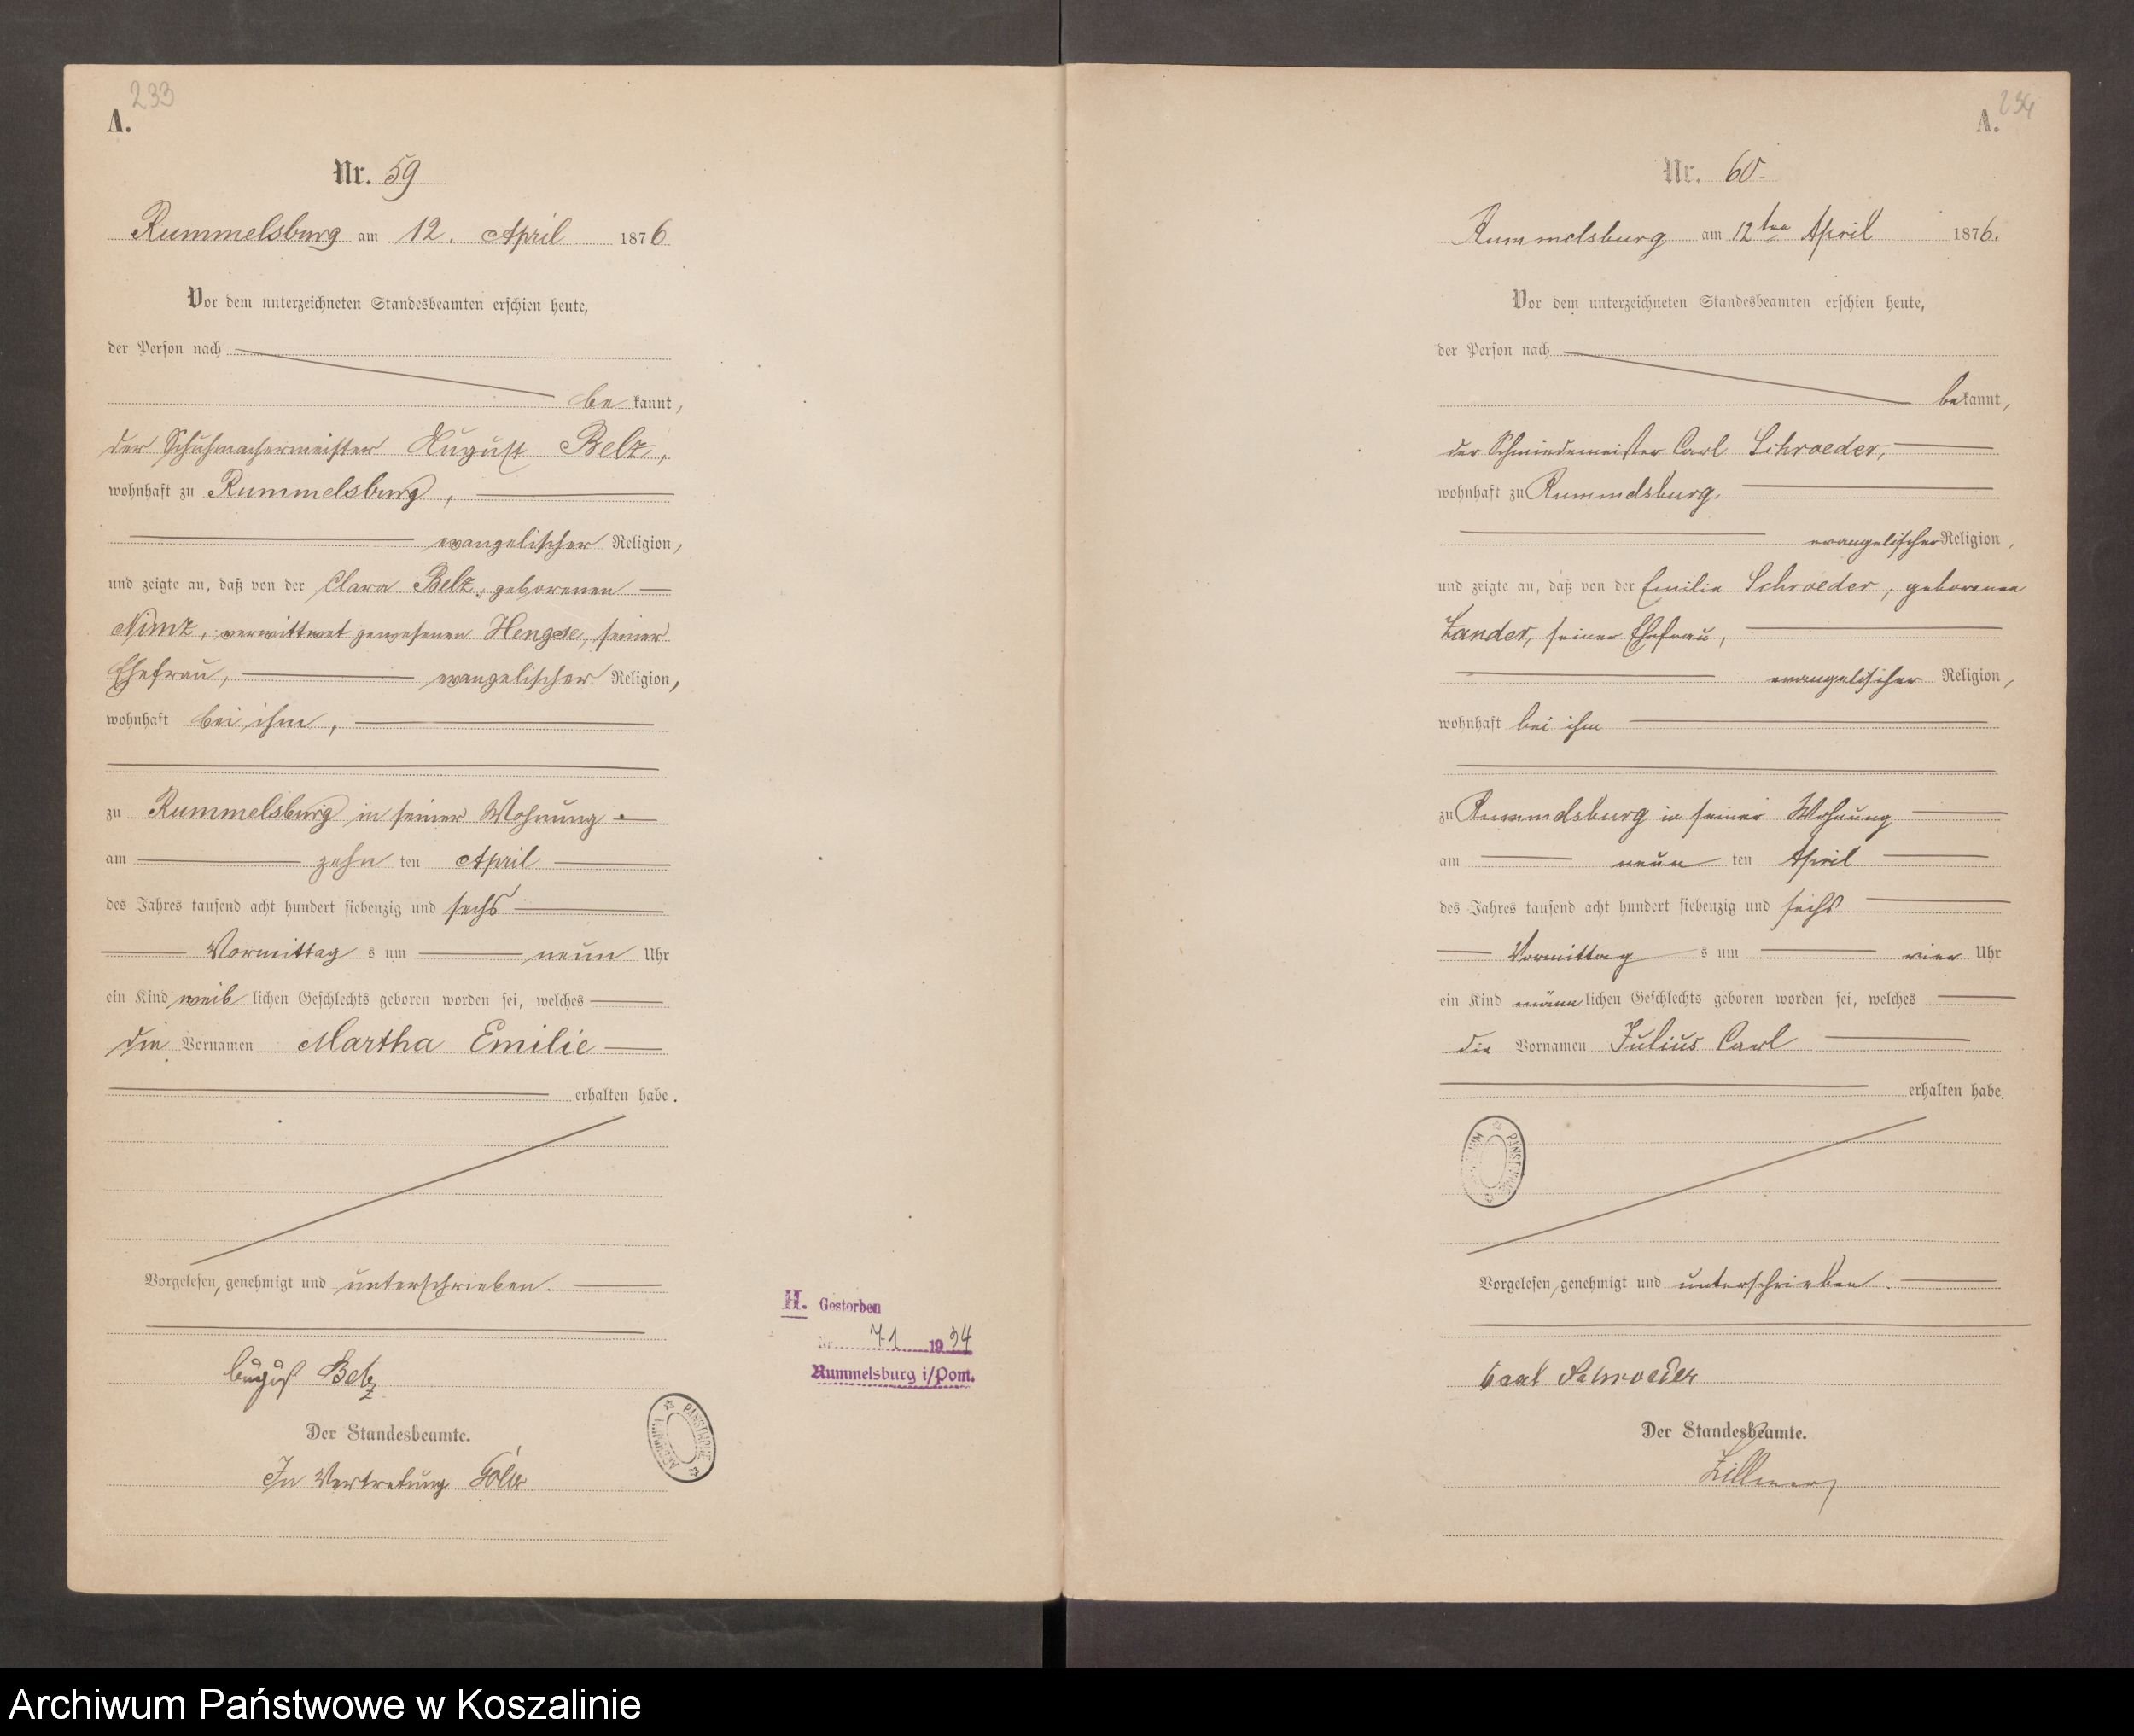 233
A.
Nr. 59
Rummelsburg am 12. April 1876
Vor dem unterzeichneten Standesbeamten erschien heute,
der Person nach
be kannt,
der Schuhmachermeister August Belz,
wohnhaft zu Rummelsburg,
evangelischer Religion,
und zeigte an, daß von der Clara Belz, geborenen
Nimz, verwittwet gewesenen Hengse, seiner
Ehefrau, evangelischer Religion,
wohnhaft bei ihm,
zu Rummelsburg in seiner Wohnung
am zehn ten April
des Jahres tausend acht hundert siebenzig und sechs
Vormittag s um neun Uhr
ein Kind weib lichen Geschlechts geboren worden sei, welches
die Vornamen Martha Emilie
erhalten habe.
Vorgelesen, genehmigt und unterschrieben.
August Belz
Der Standesbeamte.
In Vertretung
H. Gestorben
Nr. 71 1934
Rummelsburg i/Pom.
ARCHIWUM PAŃSTWOWE
234
A.
Nr. 60.
Rummelsburg am 12ten April 1876.
Vor dem unterzeichneten Standesbeamten erschien heute,
der Person nach
bekannt,
der Schmiedemeister Carl Schroeder,
wohnhaft zu Rummelsburg,
evangelischer Religion,
und zeigte an, daß von der Emilie Schroeder, geborenen
Zander, seiner Ehefrau,
evangelischer Religion,
wohnhaft bei ihm
zu Rummelsburg in seiner Wohnung
am neun ten April
des Jahres tausend acht hundert siebenzig und sechs
Vormittag s um vier Uhr
ein Kind männlichen Geschlechts geboren worden sei, welches
die Vornamen Julius Carl
erhalten habe.
ARCHIWUM PAŃSTWOWE
Vorgelesen, genehmigt und unterschrieben.
Carl Schroeder
Der Standesbeamte.
Zillmer
Archiwum Państwowe w Koszalinie